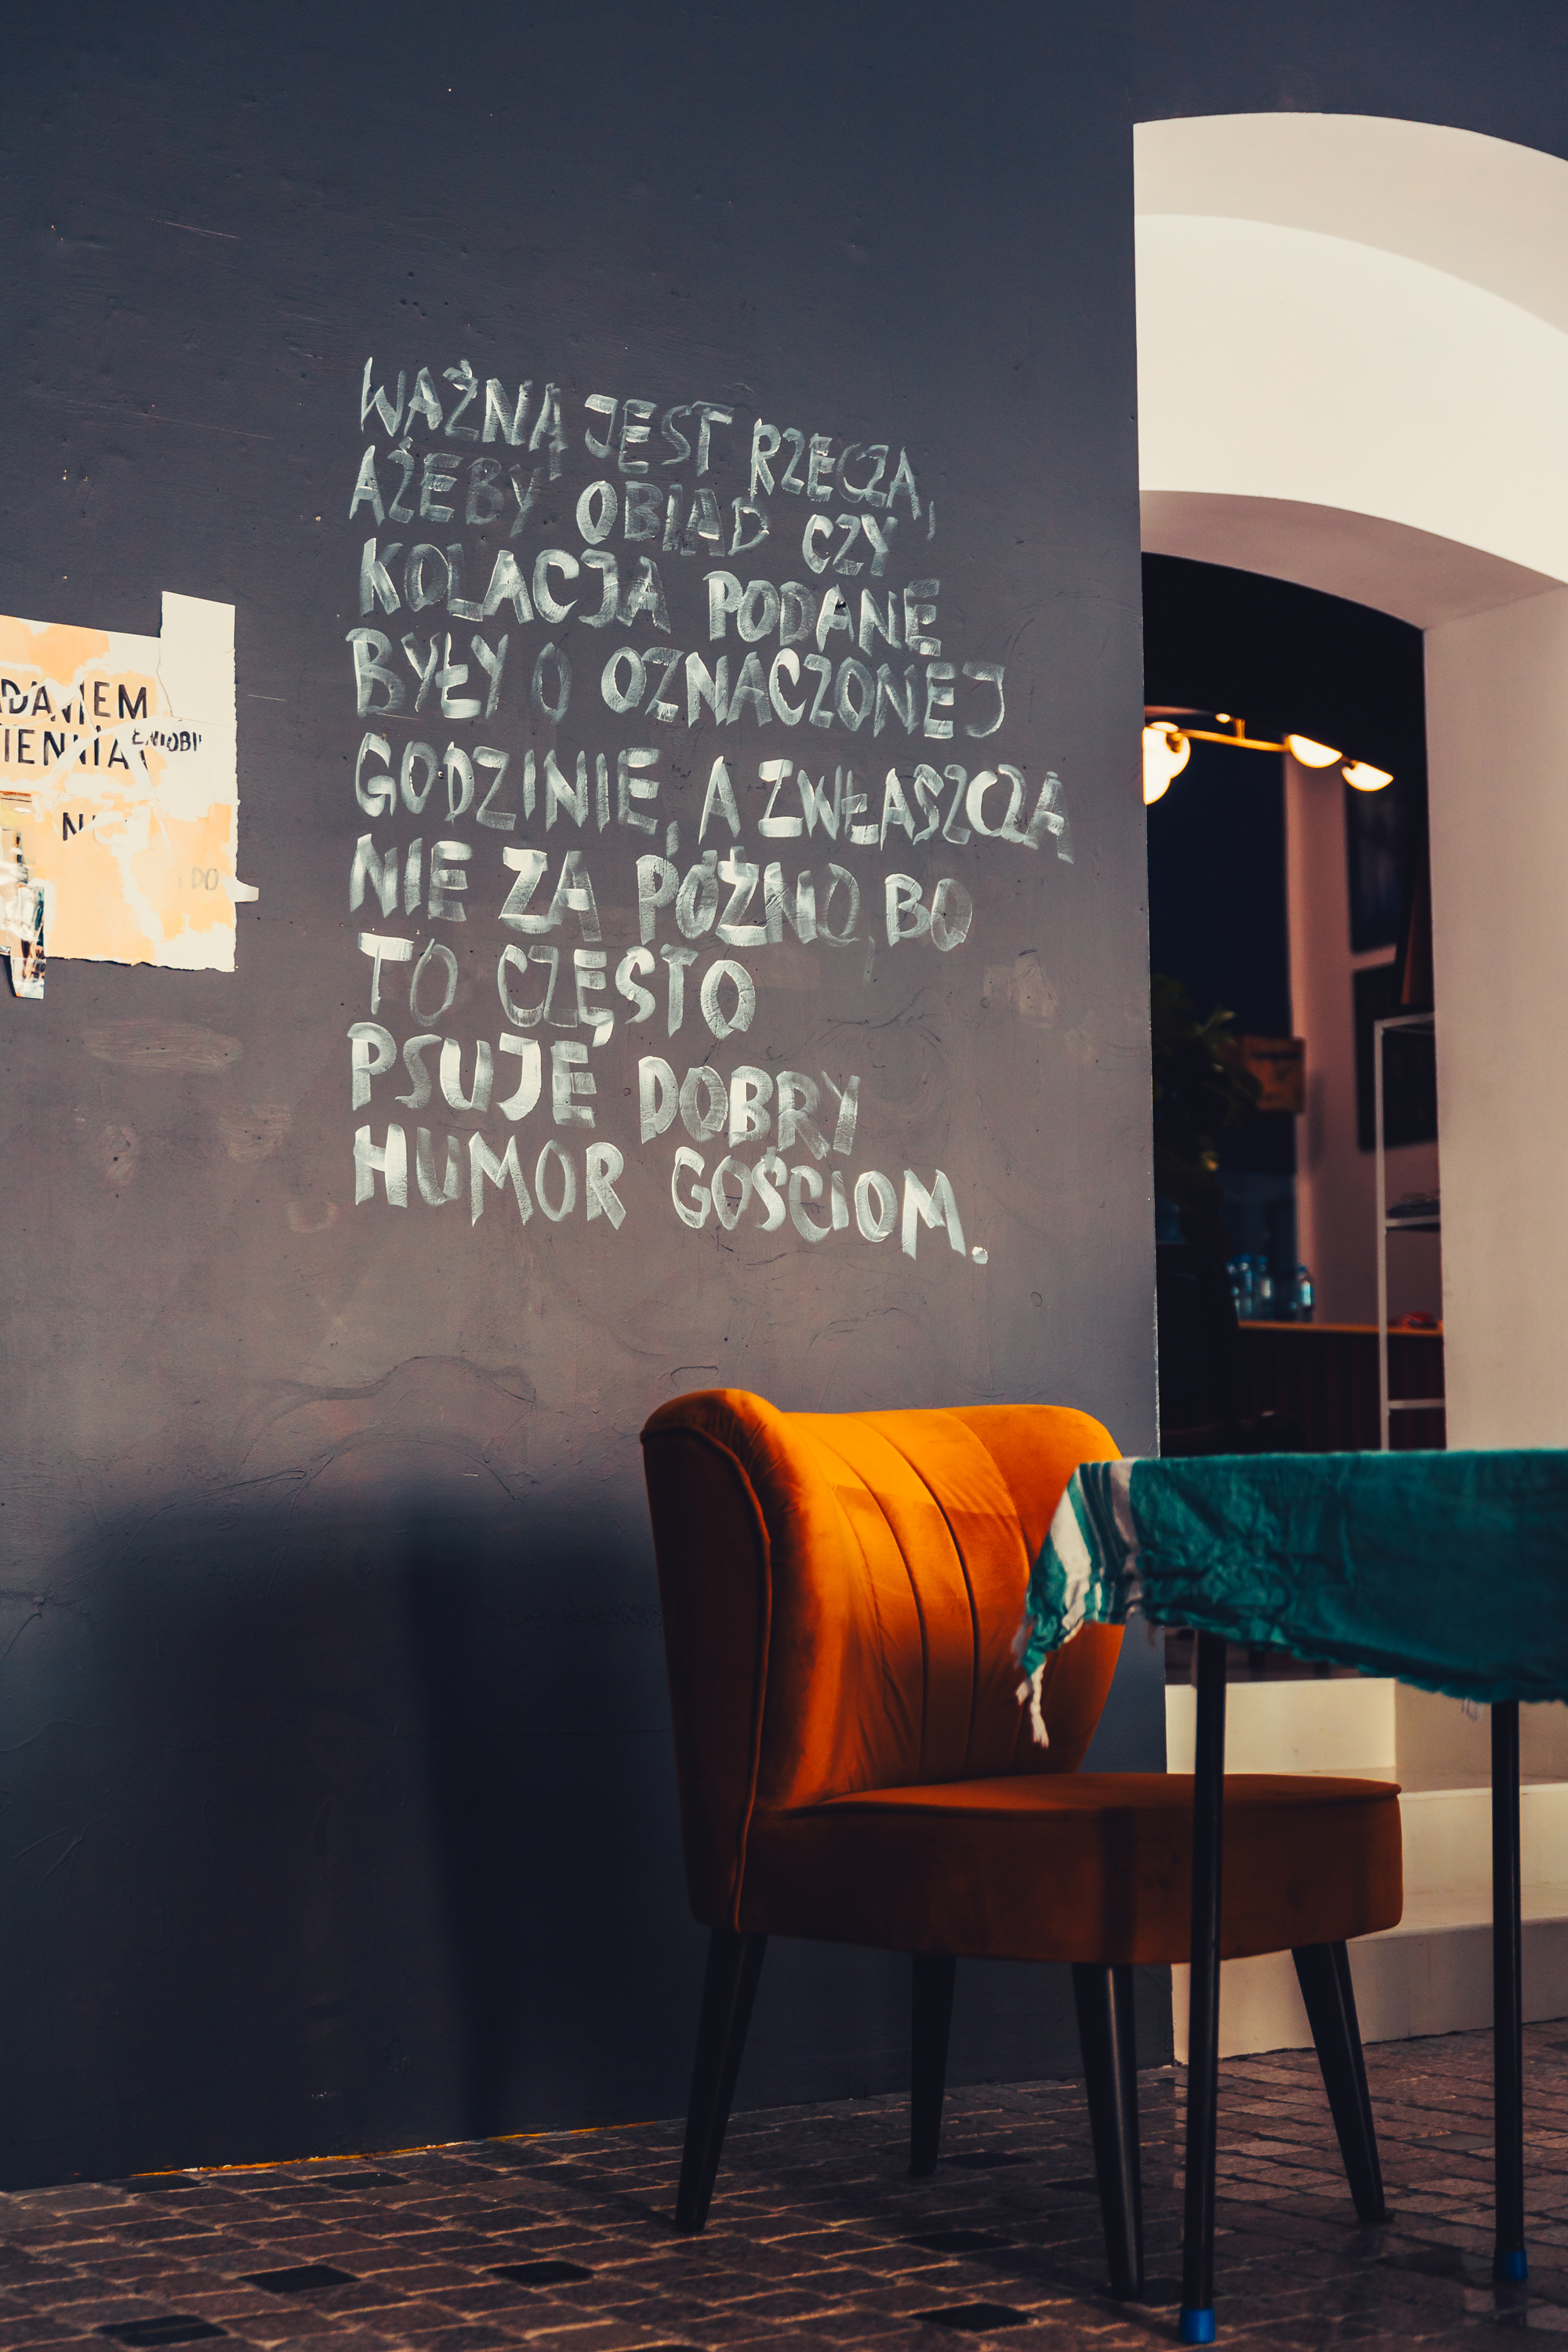 WAŻNĄ JEST RZECZĄ,
AŻEBY OBIAD CZY
KOLACJA PODANE
BYŁY O OZNACZONEJ
GODZINIE, A ZWŁASZCZA
NIE ZA PÓŹNO, BO
TO CZĘSTO
PSUJE DOBRY
HUMOR GOŚCIOM.
DO